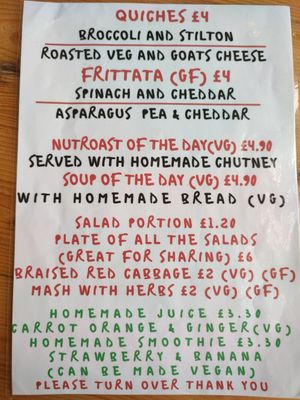 QUICHES £4
BROCCOLI AND STILTON
ROASTED VEG AND GOATS CHEESE
FRITTATA (GF) £4
SPINACH AND CHEDDAR
ASPARAGUS PEA & CHEDDAR
NUTROAST OF THE DAY(VG) £4.90
SERVED WITH HOMEMADE CHUTNEY
SOUP OF THE DAY (VG) £4.90
WITH HOMEMADE BREAD (VG)
SALAD PORTION £1.20
PLATE OF ALL THE SALADS
(GREAT FOR SHARING) £6
BRAISED RED CABBAGE £2 (VG) (GF)
MASH WITH HERBS £2 (VG) (GF)
HOMEMADE JUICE £3.30
CARROT ORANGE & GINGER(VG)
HOMEMADE SMOOTHIE £3.30
STRAWBERRY & BANANA
(CAN BE MADE VEGAN)
PLEASE TURN OVER THANK YOU